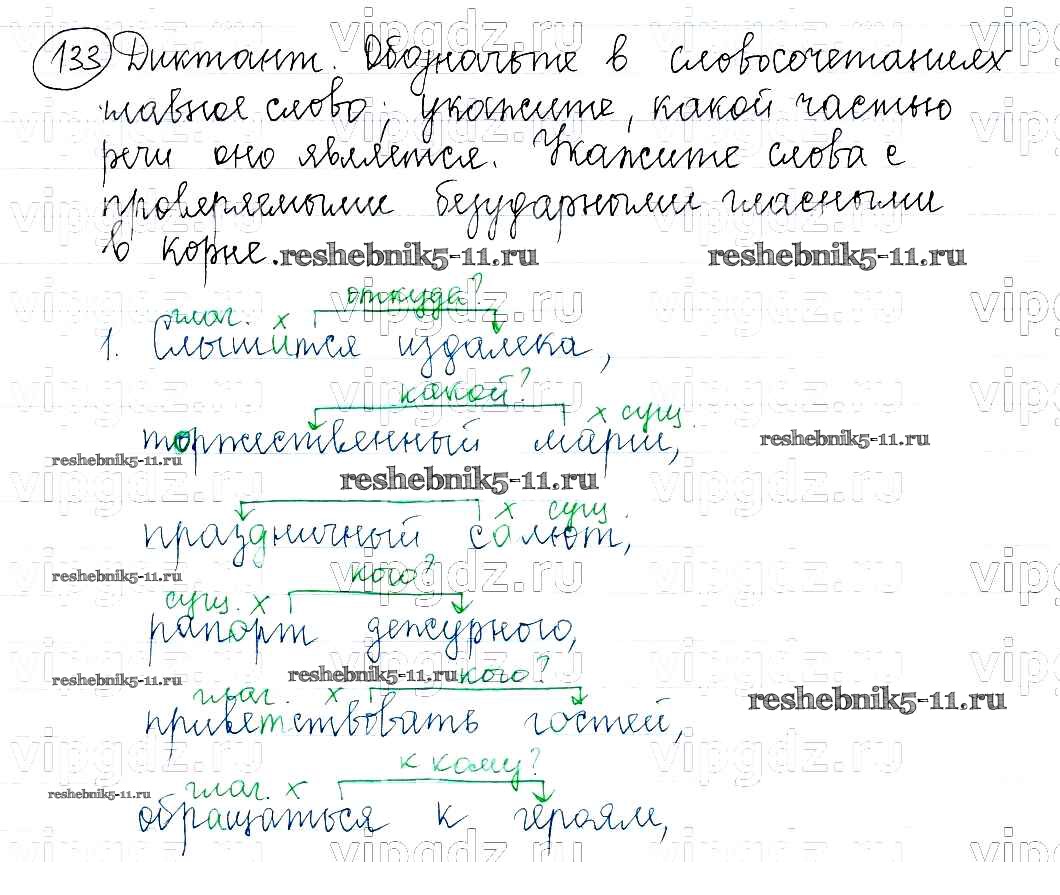 133 Диктант. Обозначьте в словосочетаниях
главное слово; укажите, какой частью
речи оно является. Укажите слова с
проверяемыми безударными гласными
в корне. reshebnik5-11.ru reshebnik5-11.ru
откуда?
глаг. х
1. Слышится издалека,
какой?
х сущ.
торжественный марш,
reshebnik5-11.ru
reshebnik5-11.ru
reshebnik5-11.ru
х сущ.
праздничный салют,
reshebnik5-11.ru
кого?
сущ. х
рапорт дежурного,
reshebnik5-11.ru reshebnik5-11.ru
кого?
глаг. х
reshebnik5-11.ru
приветствовать гостей,
к кому?
глаг. х
reshebnik5-11.ru
обращаться к героям,
vipgdz.ru